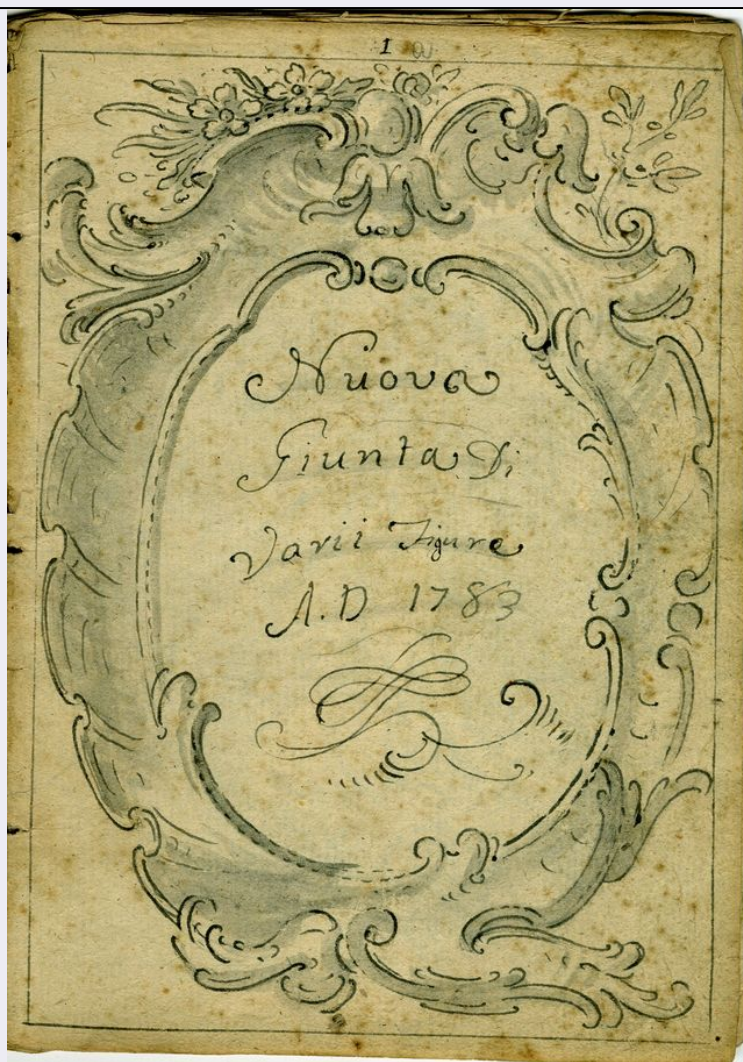 1
Nuova
Giunta Di
Varii Figure
A.D 1783